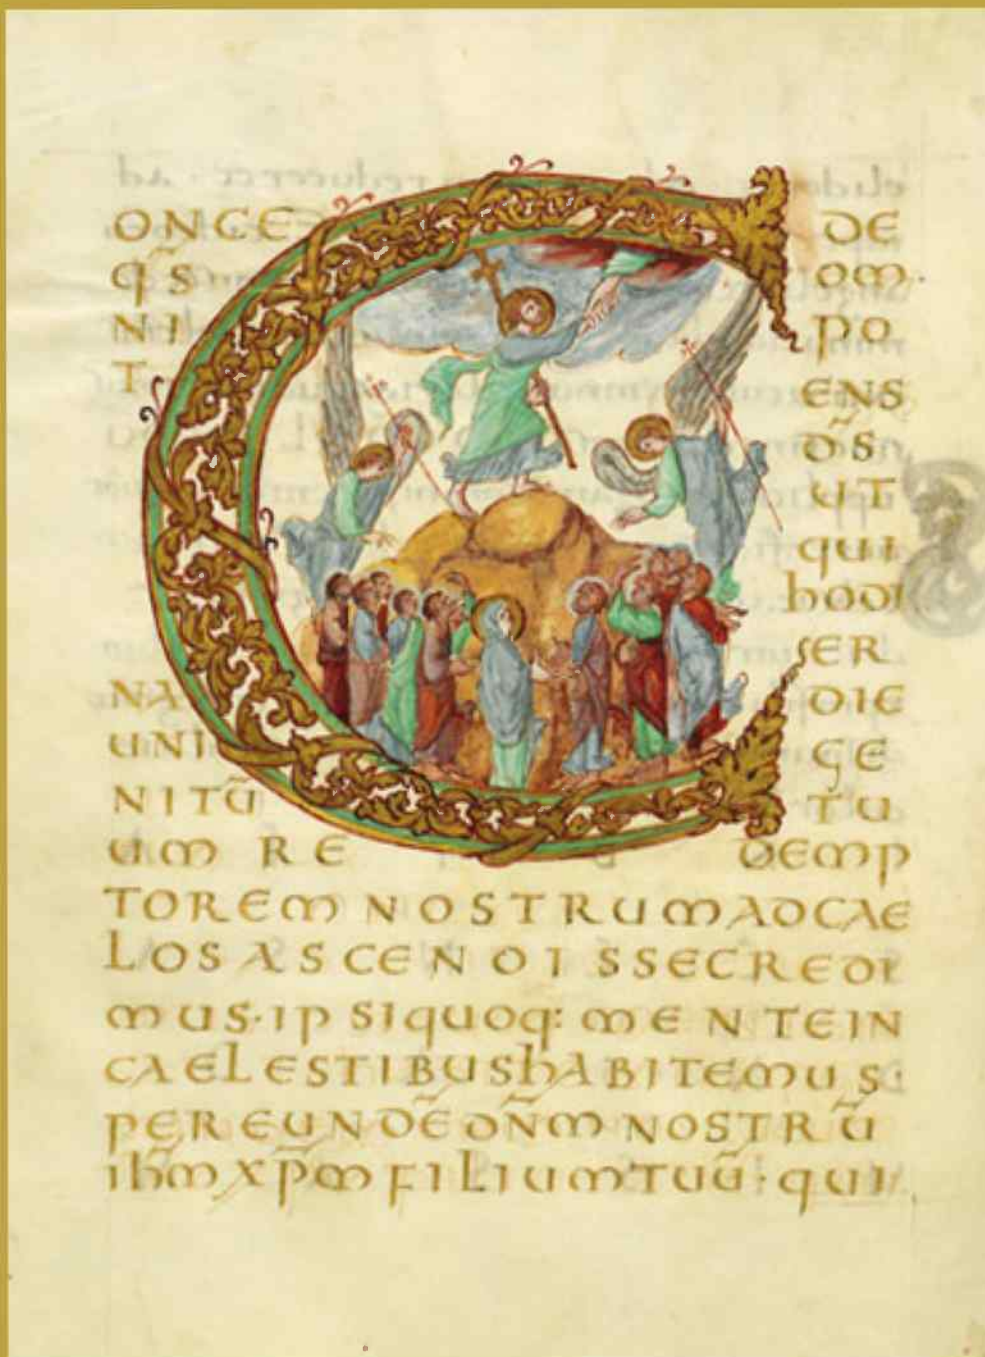 CONCE DE
q̃S Om·
NI PO
T ENS
D̃S
UT
qui
hodi
ER
NA DIE
UNI GE
NITŪ TU
UM RE DEMP
TOREM NOSTRUM AD CAE
LOS ASCENDISSE CREDI
MUS· IPSI quoq: MENTE IN
CAELESTIBUS hABITEMUS·
PER EUNDĒ DÑM NOSTRŪ
ih̃m xp̃m FILIUM TUŪ· qui